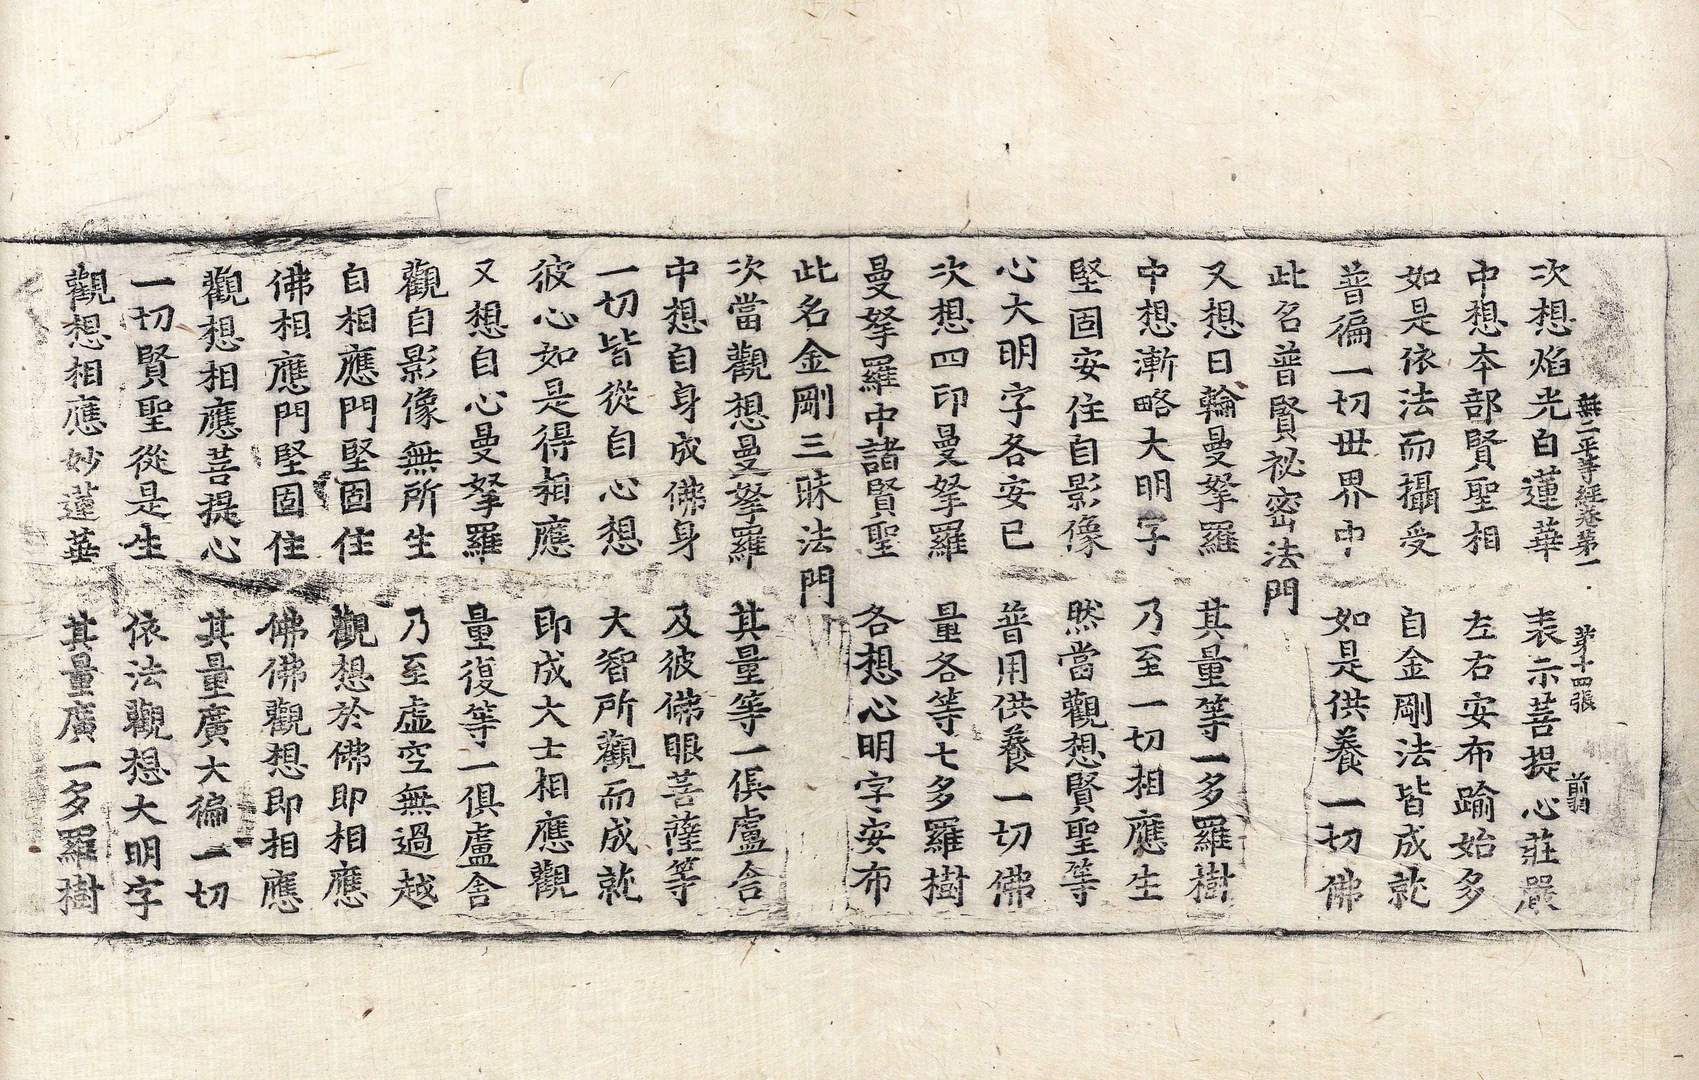 無二平等經卷第一 第十四張 前
次想焰光白蓮華 表示菩提心莊嚴
中想本部賢聖相 左右安布踰始多
如是依法而攝受 自金剛法皆成就
普徧一切世界中 如是供養一切佛
此名普賢祕密法門
又想日輪曼拏羅 其量等一多羅樹
中想漸略大明字 乃至一切相應生
堅固安住自影像 然當觀想賢聖等
心大明字各安已 普用供養一切佛
次想四印曼拏羅 量各等七多羅樹
曼拏羅中諸賢聖 各想心明字安布
此名金剛三昧法門
次當觀想曼拏羅 其量等一俱盧舍
中想自身成佛身 及彼佛眼菩薩等
一切皆從自心想 大智所觀而成就
彼心如是得相應 即成大士相應觀
又想自心曼拏羅 量復等一俱盧舍
觀自影像無所生 乃至虛空無過越
自相應門堅固住 觀想於佛即相應
佛相應門堅固住 佛佛觀想即相應
觀想相應菩提心 其量廣大徧一切
一切賢聖從是生 依法觀想大明字
觀想相應妙蓮華 其量廣一多羅樹